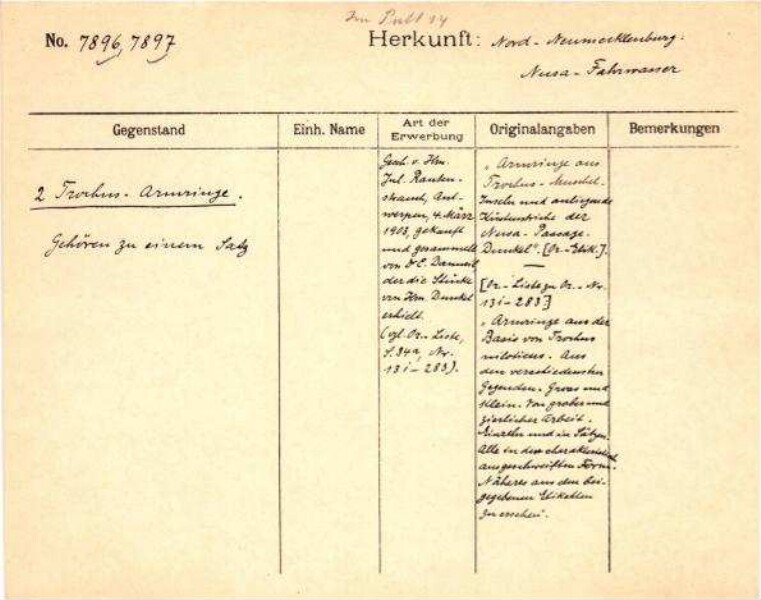 Im Pult 14
No. 7896, 7897
Herkunft: Nord-Neumecklenburg:
Nusa-Fahrwasser
Gegenstand
Einh. Name
Art der
Erwerbung
Originalangaben
Bemerkungen
2 Trochus-Armringe.
Gehören zu einem Satz
Gesch. v. Hrn.
Jul. Rauten-
strauch, Ant-
werpen, 4. März
1903, gekauft
und gesammelt
von Dr E. Danneil,
der die Stücke
von Hrn. Dunkel
erhielt.
(vgl. Or.-Liste,
S. 34a, Nr.
13i-283).
„Armringe aus
Trochus-Muschel.
Inseln und anliegende
Küstenstriche der
Nusa-Passage.
Dunkel". [Or.-Etik.].
[Or.-Liste zu Or.-Nr.
13i-283]
„Armringe aus der
Basis von Trochus
niloticus. Aus
den verschiedensten
Gegenden. Gross und
klein. Von grober und
zierlicher Arbeit.
Einzeln und in Sätzen.
Alle in der charakteristisch
ausgeschweiften Form.
Näheres aus den bei-
gegebenen Etiketten
zu ersehen".